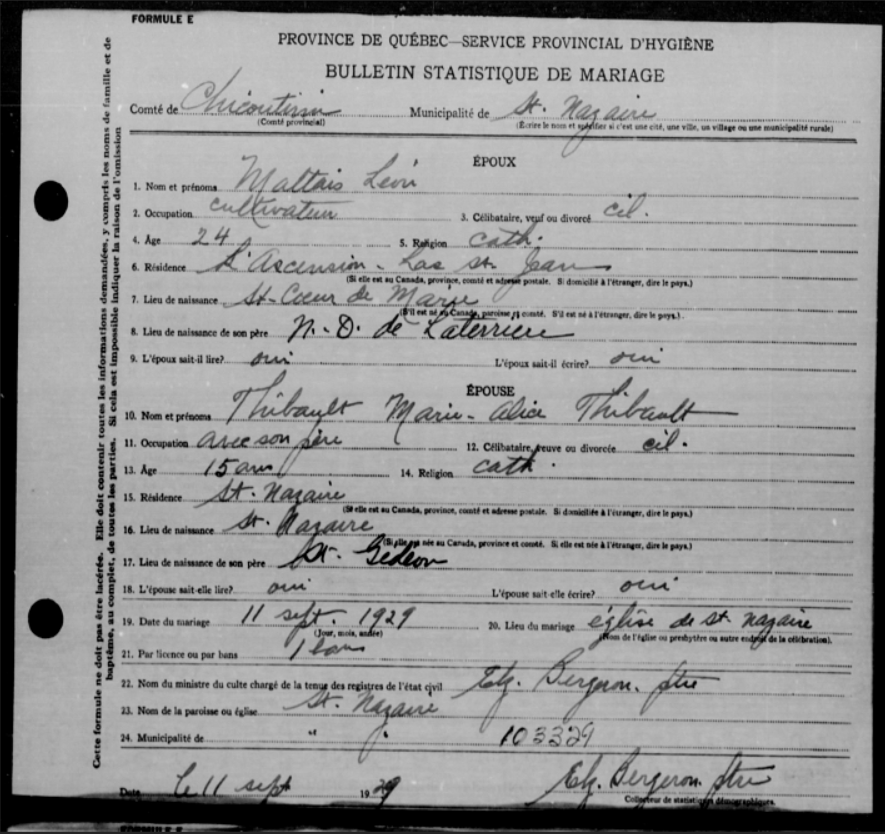 FORMULE E
PROVINCE DE QUÉBEC—SERVICE PROVINCIAL D'HYGIÈNE
BULLETIN STATISTIQUE DE MARIAGE
Comté de Chicoutimi Municipalité de St. Nazaire
(Comté provincial) (Écrire le nom et spécifier si c'est une cité, une ville, un village ou une municipalité rurale)
ÉPOUX
1. Nom et prénoms Maltais Léon
2. Occupation cultivateur 3. Célibataire, veuf ou divorcé cél.
4. Âge 24 5. Religion cath.
6. Résidence L'Ascension - Lac St. Jean
(Si elle est au Canada, province, comté et adresse postale. Si domicilié à l'étranger, dire le pays.)
7. Lieu de naissance St-Coeur de Marie
(S'il est né au Canada, paroisse et comté. S'il est né à l'étranger, dire le pays.)
8. Lieu de naissance de son père N.-D. de Laterriere
9. L'époux sait-il lire? oui L'époux sait-il écrire? oui
ÉPOUSE
10. Nom et prénoms Thibault Marie-Alice Thibault
11. Occupation avec son père 12. Célibataire, veuve ou divorcée cél.
13. Âge 15 ans 14. Religion cath.
15. Résidence St. Nazaire
(Si elle est au Canada, province, comté et adresse postale. Si domiciliée à l'étranger, dire le pays.)
16. Lieu de naissance St. Nazaire
(Si elle est née au Canada, province et comté. Si elle est née à l'étranger, dire le pays.)
17. Lieu de naissance de son père St. Gédéon
18. L'épouse sait-elle lire? oui L'épouse sait-elle écrire? oui
19. Date du mariage 11 sept. 1929 20. Lieu du mariage église de St-Nazaire
(Jour, mois, année) (Nom de l'église ou presbytère ou autre endroit de la célébration).
21. Par licence ou par bans 1 ban
22. Nom du ministre du culte chargé de la tenue des registres de l'état civil Elz. Bergeron. ptre
23. Nom de la paroisse ou église St. Nazaire
24. Municipalité de " " 103329
Date Le 11 sept 1929 Elz. Bergeron. ptre
Collecteur de statistiques démographiques.
Cette formule ne doit pas être lacérée. Elle doit contenir toutes les informations demandées, y compris les noms de famille et de
baptême, au complet, de toutes les parties. Si cela est impossible indiquer la raison de l'omission
FORMULE E